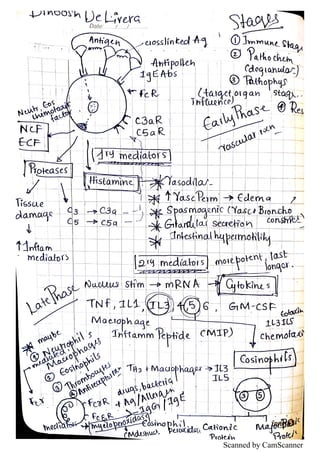 Dinoosh De Livera
Date
Stages
① Immune Stage
② Pathochem
(degranular)
③ Pathophys
(target organ stage
influence)
Antigen
crosslinked Ag
Antipollen
IgE Abs
FcR
Neutr, Eos
chemotaxic
factor
NCF
ECF
C3aR
C5aR
Early Phase
vascular rxn
1ry mediators
Proteases
Histamine
Vasodilat
↑ Vasc Perm → Edema
Spasmogenic (Vasc & Broncho
constrict
Glandular secretion
Intestinal hypermotility
Tissue
damage
C3 → C3a
C5 → C5a
↑ Inflam
mediators
2ry mediators
more potent, last
longer.
Late Phase
Nucleus Stim → mRNA → Cytokines
TNF, IL1, IL3 + 5 6, GM-CSF
Macrophage
Inflamm Peptide (MIP)
IL3 IL5
chemotax
Eosinophils
maybe
mediated
① Neutrophils
Macrophages
② Eosinophils
③ Thrombocytes
drugs, bacteria
FcγR + Ag/Allergen
FcεR + IgG/IgE
TH2 + Macrophages → IL3
IL5
3 5
mediators
myeloperoxidase
Eosinophil
Peroxidase
Cationic
Protein
Major Basic
Protein
Scanned by CamScanner